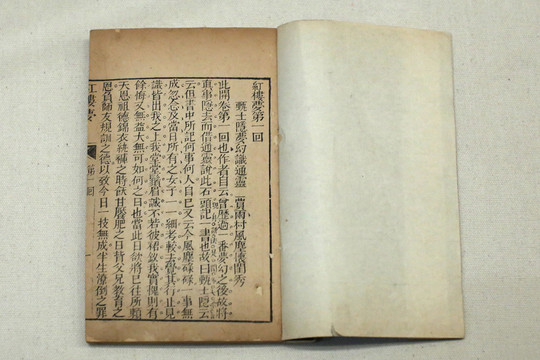 紅樓夢第一回
甄士隱夢幻識通靈 賈雨村風塵懷閨秀
此開卷第一回也作者自云曾歷過一番夢幻之後故將
真事隱去而借通靈說此石頭記一書也故曰甄士隱云
云但書中所記何事何人自己又云今風塵碌碌一事無
成忽念及當日所有之女子一一細考較去覺其行止見
識皆出我之上我堂堂鬚眉誠不若彼裙釵我實愧則有
餘悔又無益大無可如何之日也當此日欲將已往所賴
天恩祖德錦衣紈褲之時飫甘饜肥之日背父兄教育之
恩負師友規訓之德以致今日一技無成半生潦倒之罪
紅樓夢 第一回